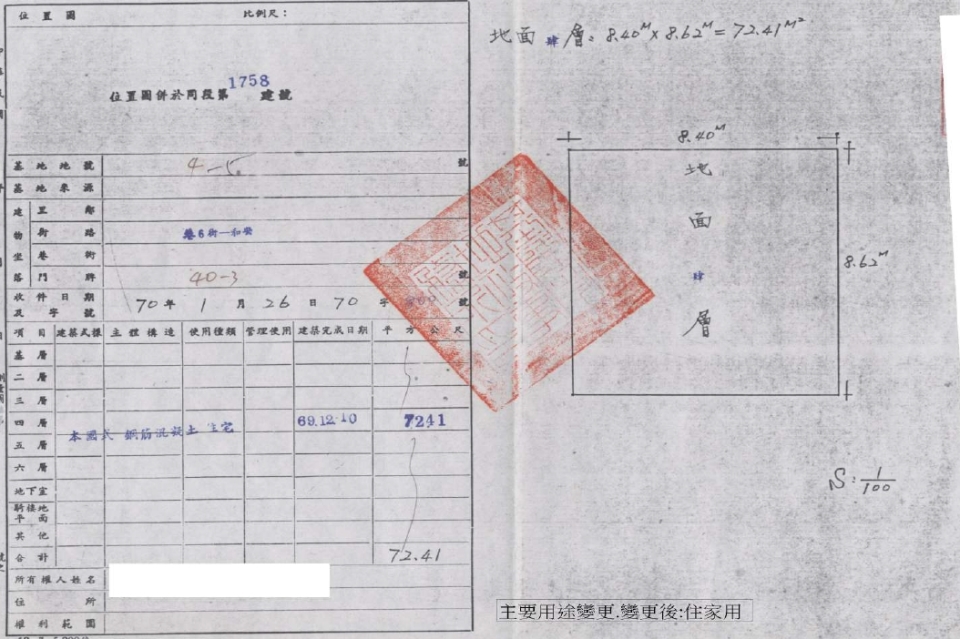 位置圖 比例尺:
位置圖併於同段第1758建號
基地地號 4-5. 號
基地來源
建物坐落
里鄰
街路
巷6街一和
巷衖
門牌 40-3 號
收件日期及字號 70年1月26日70字 號
項目 建築式樣 主體構造 使用種類 管理使用 建築完成日期 平方公尺
基層
二層
三層
四層 本國式 鋼筋混凝土 住宅 69.12.10 7241
五層
六層
地下室
騎樓地平面
其他
合計 72.41
所有權人姓名
住所
權利範圍
地面肆層: 8.40M×8.62M=72.41M²
8.40M
地
面
肆
層
8.62M
S:1/100
主要用途變更.變更後:住家用